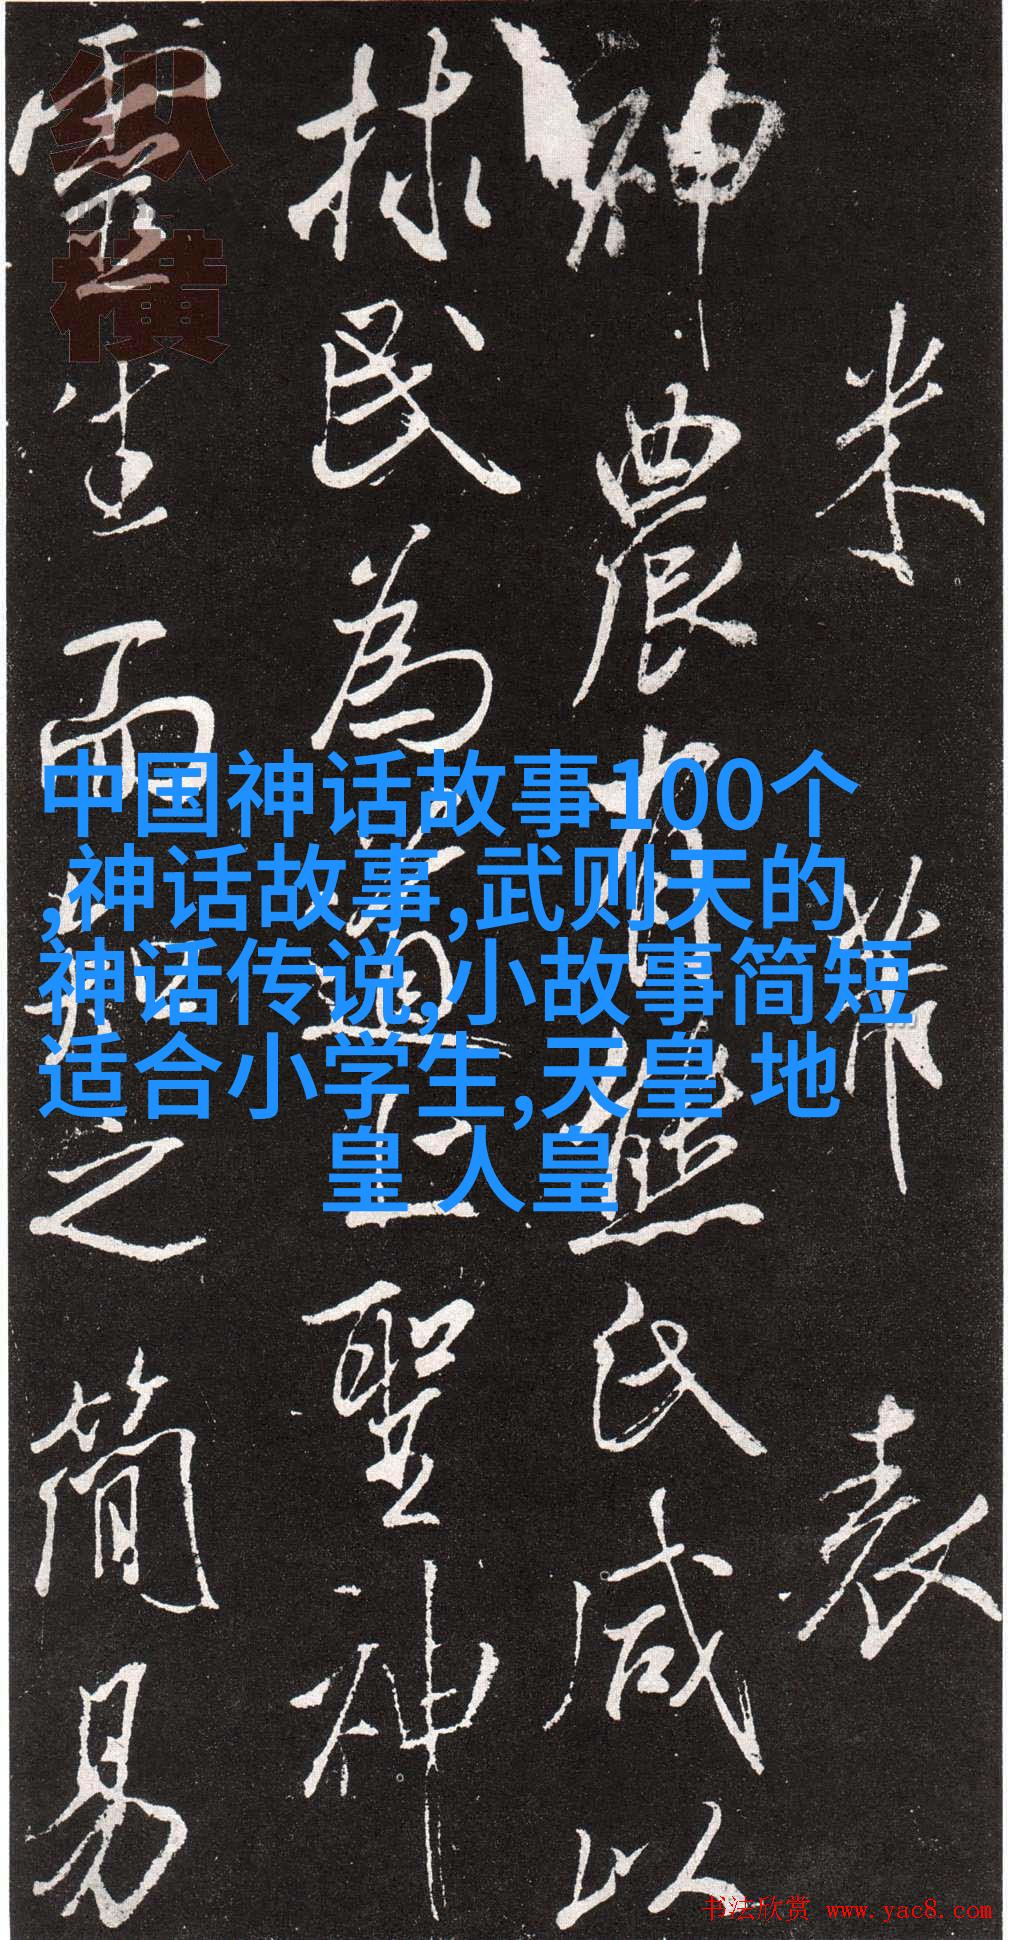 米芾表
神農有熊氏咸以
拯民為上聖神
靈生而知之簡易
纵
横
中国神话故事100个
,神话故事,武则天的
神话传说,小故事简短
适合小学生,天皇 地
皇 人皇
书法欣赏 www.yac8.com